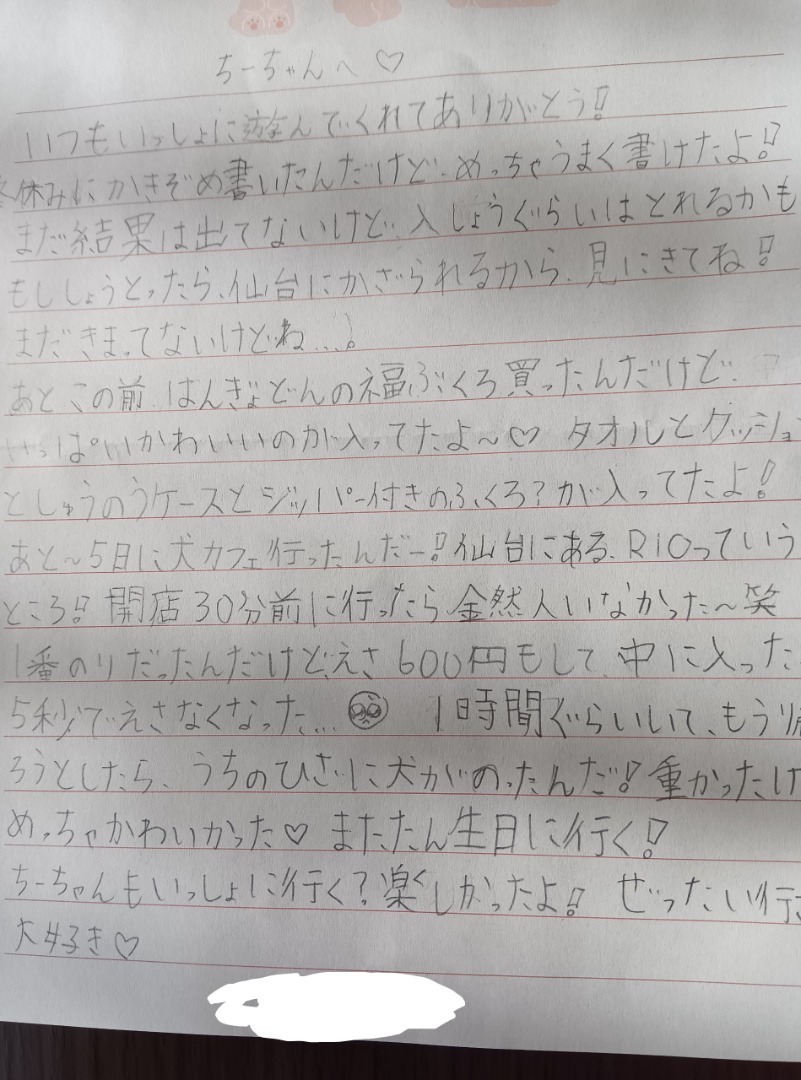 ちーちゃんへ♡
いつもいっしょに遊んでくれてありがとう!!
冬休みにかきぞめ書いたんだけど、めっちゃうまく書けたよ!!
まだ結果は出てないけど、入しょうぐらいはとれるかも
もししょうとったら、仙台にかざられるから、見にきてね!!
まだきまってないけどね...!
あと この前、はんぎょどんの福ぶくろ買ったんだけど、
いっぱいかわいいのが入ってたよ～♡ タオルとクッション
としゅうのうケースとジッパー付きのふくろ?が入ってたよ!
あと～5日に犬カフェ行ったんだー!!仙台にある、RIOっていう
ところ!! 開店30分前に行ったら、全然人いなかった～笑
1番のりだったんだけど、えさ600円もして、中に入った
5秒でえさなくなった... 1時間ぐらいいて、もう帰
ろうとしたら、うちのひざに犬がのったんだ!!重かったけ
めっちゃかわいかった♡ またたん生日に行く!
ちーちゃんもいっしょに行く?楽しかったよ!! ぜったい行
大好き♡